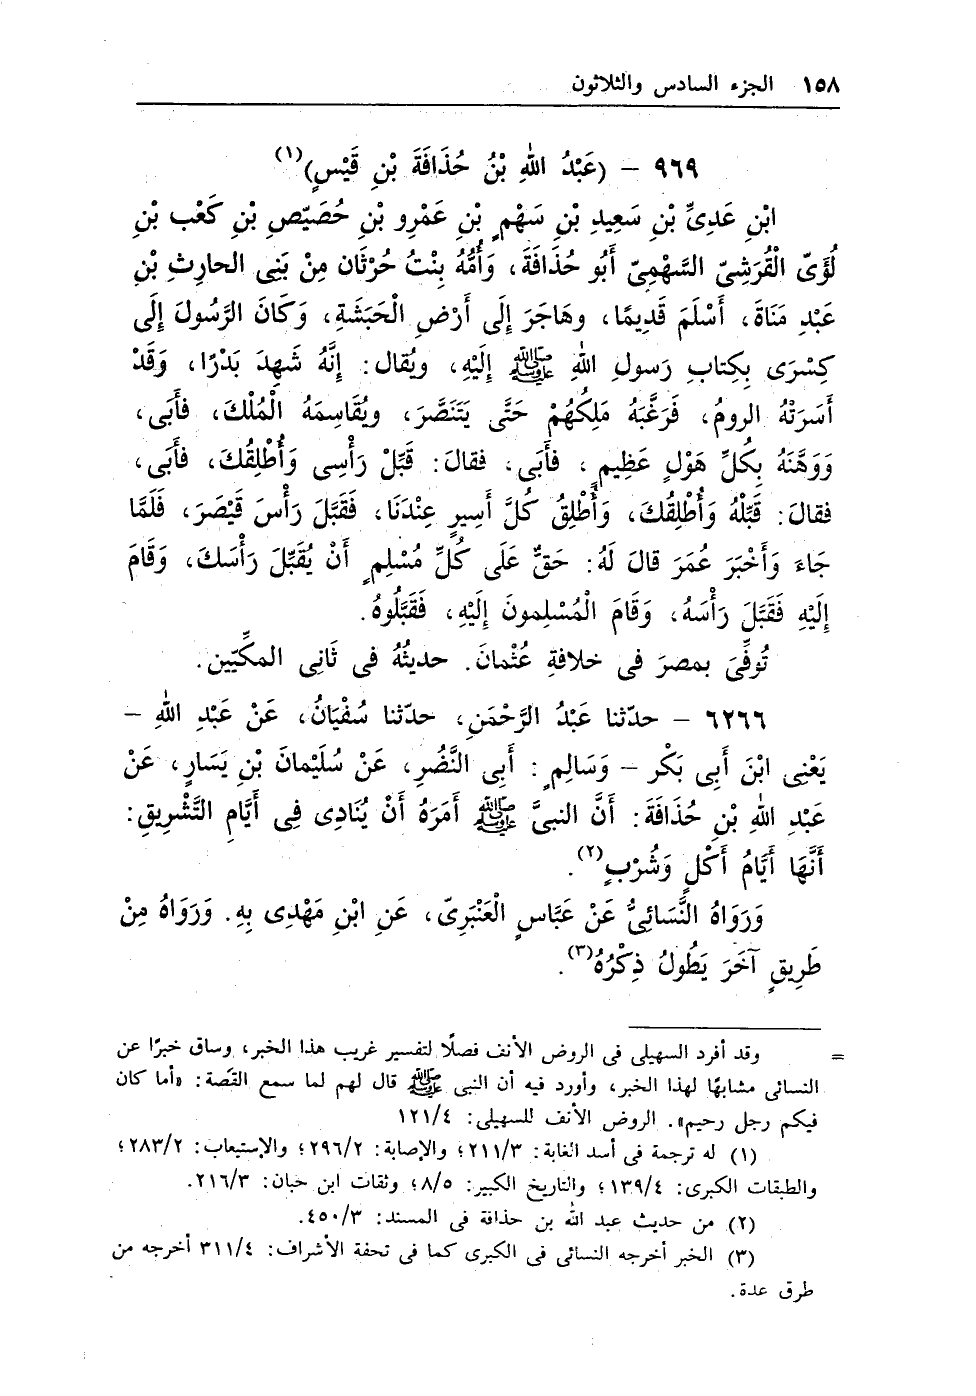 ١٥٨ الجزء السادس والثلاثون
٩٦٩ – (عَبْدُ اللهِ بْنُ حُذَافَةَ بْنِ قَيْسٍ)(١)
ابْنِ عَدِىِّ بْنِ سَعِيدِ بْنِ سَهْمٍ بْنِ عَمْرِو بْنِ حُصَيّصِ بْنِ كَعْب بْنِ
لُؤَىّ الْقُرَشِىّ السَّهْمِىّ أَبُو حُذَافَةَ، وَأُمُّهُ بِنْتُ حُرْثَان مِنْ بَنِى الحارِثِ بْنِ
عَبْدِ مَنَاةَ، أَسْلَمَ قَدِيمًا، وهَاجَرَ إِلَى أَرْضِ الْحَبَشَةِ، وَكَانَ الرَّسُولَ إِلَى
كِسْرَى بِكِتابِ رَسولِ اللهِ ﷺ إِلَيْهِ، ويُقال: إِنَّهُ شَهِدَ بَدْرًا، وَقَدْ
أَسَرَتْهُ الرومُ، فَرَغَّبَهُ مَلِكُهُمْ حَتَّى يَتَنَصَّرَ، ويُقَاسِمَهُ الْمُلْكَ، فأَبَى،
وَوَهَّنَهُ بِكُلِّ هَوْلٍ عَظِيمٍ، فأَبَى، فقالَ: قَبِّلْ رَأْسِى وَأُطْلِقُكَ، فأَبَى،
فقالَ: قَبِّلْهُ وَأُطْلِقُكَ، وَأُطْلِقُ كُلَّ أَسِيرٍ عِنْدَنَا، فَقَبَّلَ رَأْسَ قَيْصَرَ، فَلَمَّا
جَاءَ وَأَخْبَرَ عُمَرَ قالَ لَهُ: حَقٌّ عَلَى كُلِّ مُسْلِمٍ أَنْ يُقَبِّلَ رَأْسَكَ، وَقَامَ
إِلَيْهِ فَقَبَّلَ رَأْسَهُ، وَقَامَ الْمُسْلِمونَ إِلَيْهِ، فَقَبَّلُوهُ.
تُوفِّىَ بمصرَ فى خلافةِ عُثْمانَ. حديثُهُ فى ثَانِى المكِّيّين.
٦٢٦٦ – حدّثنا عَبْدُ الرَّحْمَنِ، حدّثنا سُفْيَانُ، عَنْ عَبْدِ اللهِ –
يَعْنِى ابْنَ أَبِى بَكْر – وَسَالِمٍ: أَبِى النَّضْرِ، عَنْ سُلَيْمانَ بْنِ يَسَارٍ، عَنْ
عَبْدِ اللهِ بْنِ حُذَافَةَ: أَنَّ النبىَّ ﷺ أَمَرَهُ أَنْ يُنَادِى فِى أَيَّامِ التَّشْرِيقِ:
أَنَّهَا أَيَّامُ أَكْلٍ وَشُرْبٍ(٢).
وَرَوَاهُ النَّسَائِىُّ عَنْ عَبَّاسٍ الْعَنْبَرِىّ، عَنِ ابْنِ مَهْدِى بِهِ. وَرَوَاهُ مِنْ
طَرِيقٍ آخَرَ يَطُولُ ذِكْرُهُ(٣).
= وقد أفرد السهيلى فى الروض الأنف فصلًا لتفسير غريب هذا الخبر، وساق خبرًا عن
النسائى مشابهًا لهذا الخبر، وأورد فيه أن النبى ﷺ قال لهم لما سمع القصّة: «أما كان
فيكم رجل رحيم». الروض الأنف للسهيلى: ١٢١/٤
(١) له ترجمة فى أسد الغابة: ٢١١/٣؛ والإصابة: ٢٩٦/٢؛ والإستيعاب: ٢٨٣/٢؛
والطبقات الكبرى: ١٣٩/٤؛ والتاريخ الكبير: ٨/٥؛ وثقات ابن حبان: ٢١٦/٣.
(٢) من حديث عبد الله بن حذافة فى المسند: ٤٥٠/٣.
(٣) الخبر أخرجه النسائى فى الكبرى كما فى تحفة الأشراف: ٣١١/٤ أخرجه من
طرق عدة.